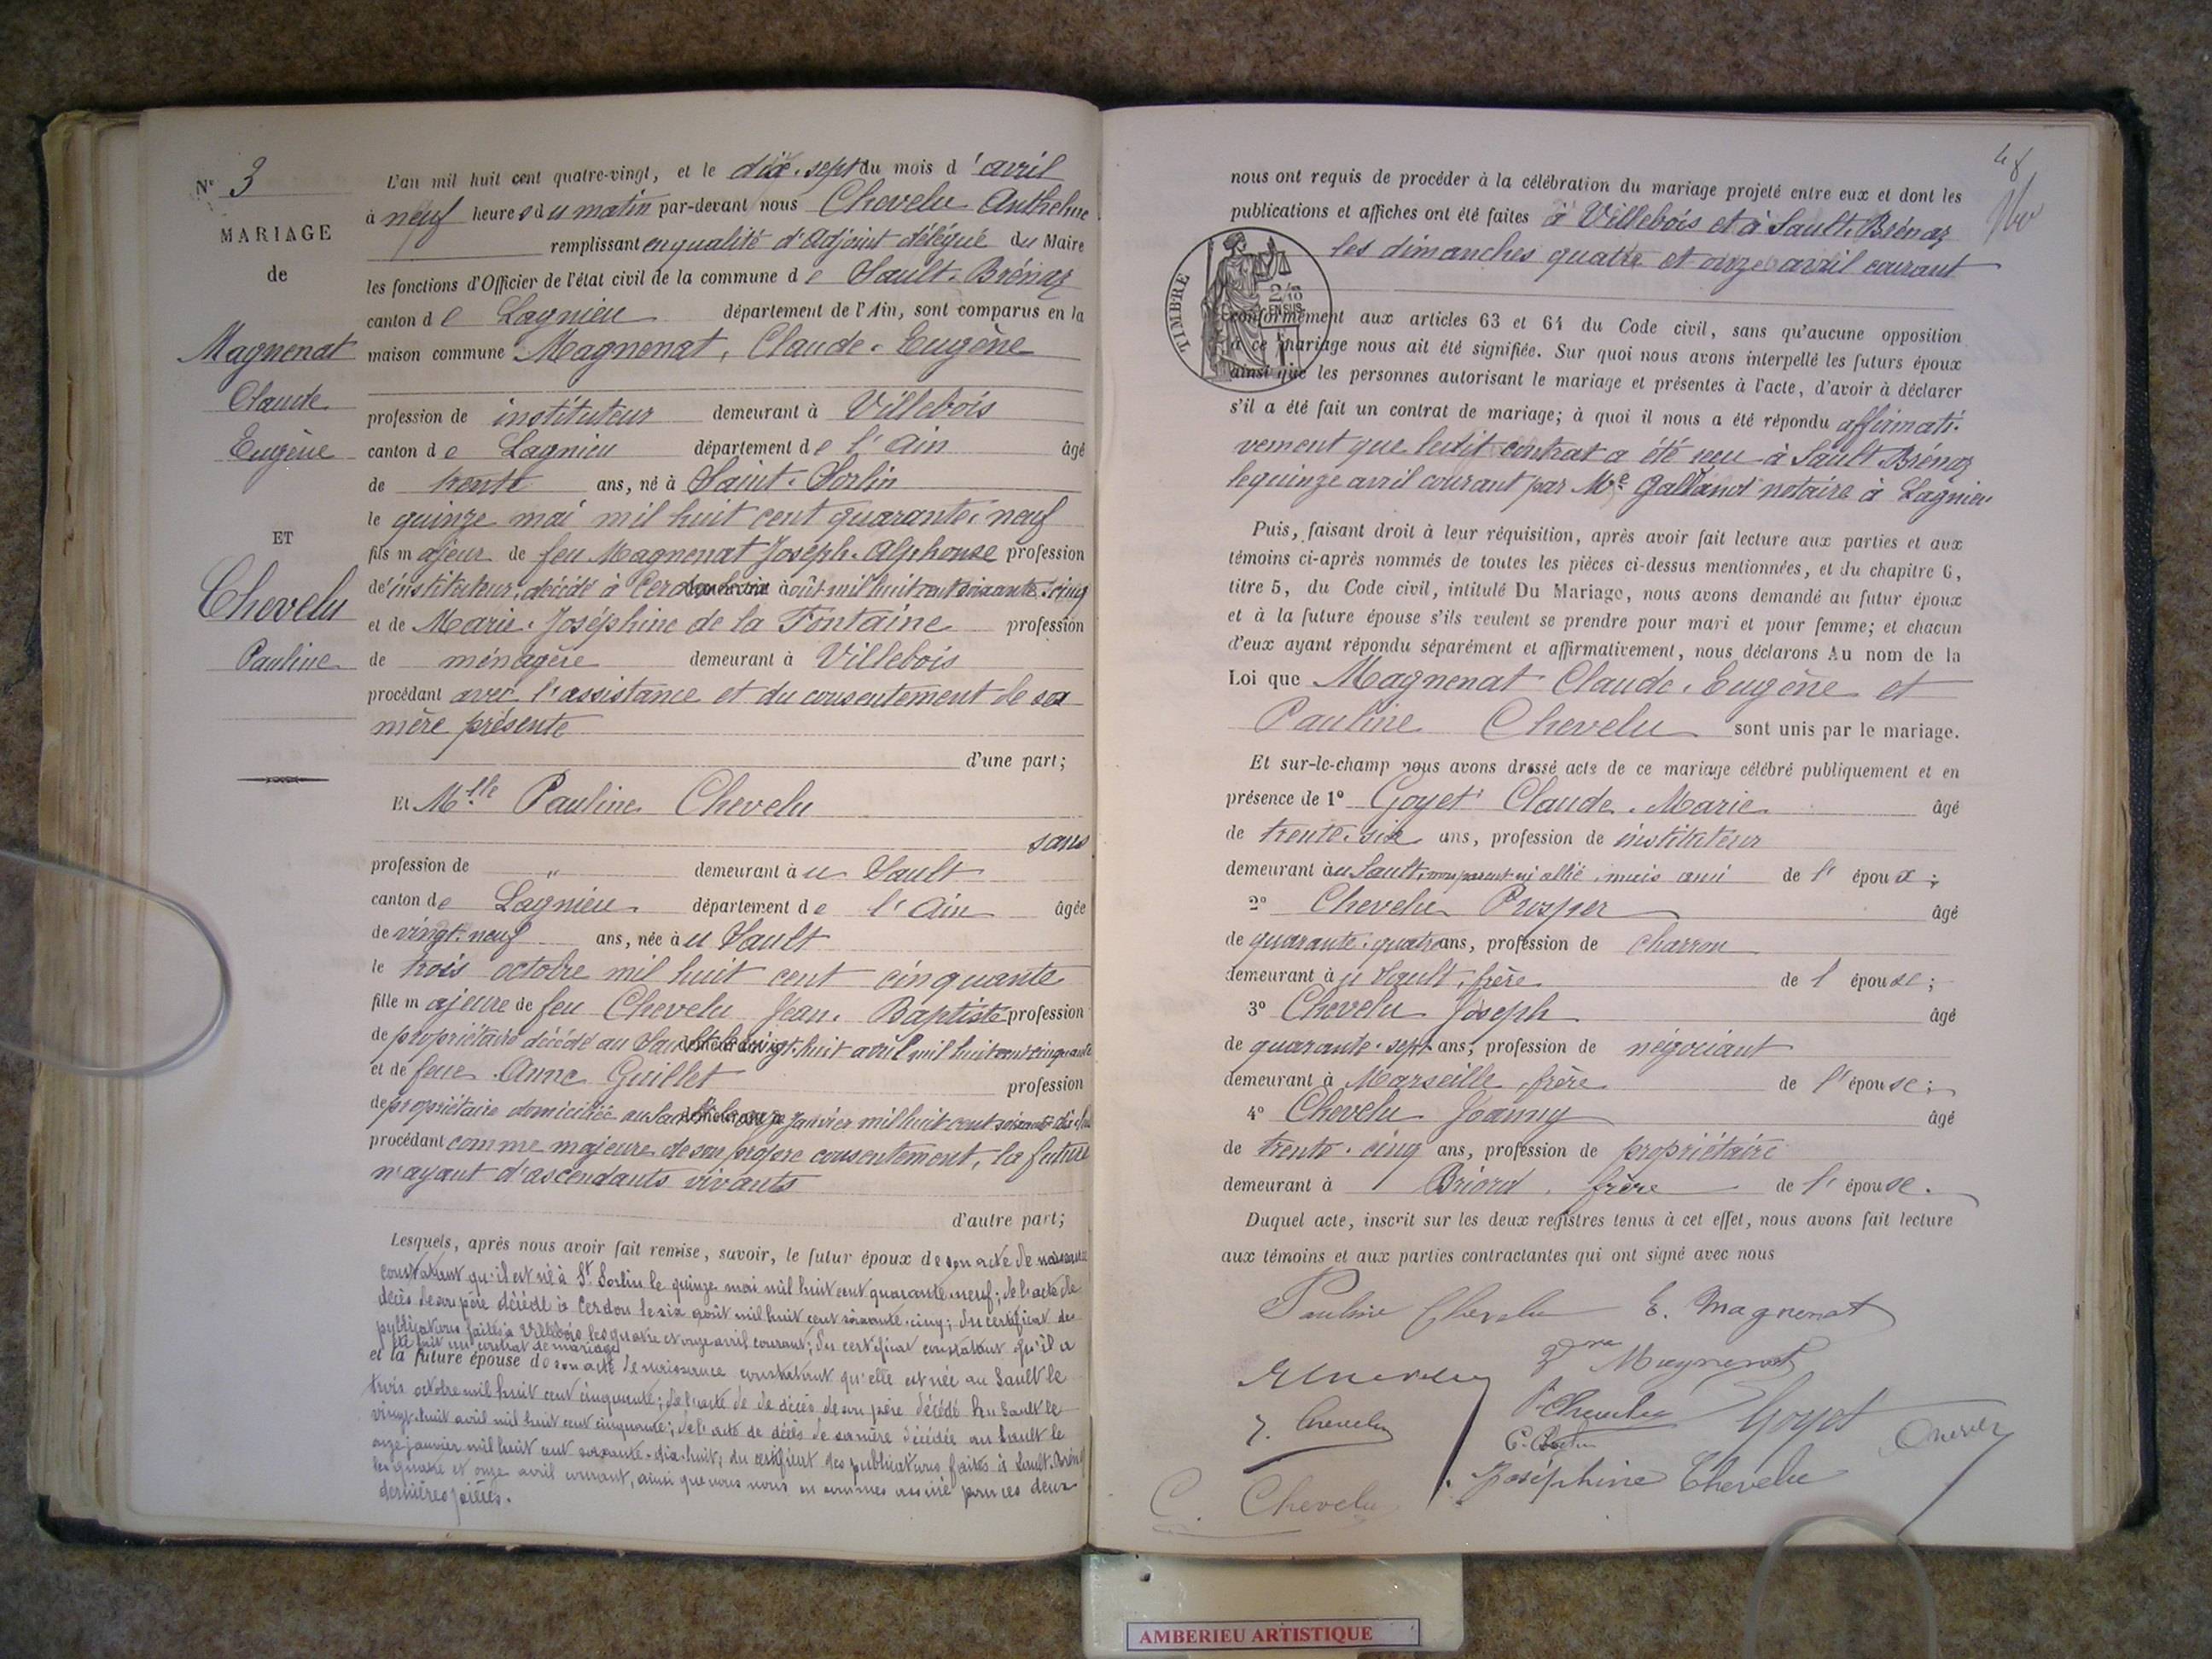 Nº 3
MARIAGE
de
Magnenat
Claude
Eugène
ET
Chevelu
Pauline
L'an mil huit cent quatre-vingt, et le dix-sept du mois d'avril
à neuf heures du matin par-devant nous Chevelu Anthelme
remplissant en qualité d'Adjoint délégué du Maire
les fonctions d'Officier de l'état civil de la commune de Sault-Brénaz
canton de Lagnieu département de l'Ain, sont comparus en la
maison commune Magnenat, Claude-Eugène
profession de instituteur demeurant à Villebois
canton de Lagnieu département de l'Ain âgé
de trente ans, né à Saint-Sorlin
le quinze mai mil huit cent quarante-neuf
fils majeur de feu Magnenat Joseph-Alphonse profession
d'instituteur, décédé à Cerdon le six août mil huit cent soixante-cinq
et de Marie-Joséphine de la Fontaine profession
de ménagère demeurant à Villebois
procédant avec l'assistance et du consentement de sa
mère présente
d'une part;
Et Mlle Pauline Chevelu
sans
profession de " demeurant à u Sault
canton de Lagnieu département de l'Ain âgée
de vingt-neuf ans, née à u Sault
le trois octobre mil huit cent cinquante
fille majeure de feu Chevelu Jean-Baptiste profession
de propriétaire décédé au Sault le vingt-huit avril mil huit cent cinquante
et de feue Anne Guillet profession
de propriétaire domiciliée au Sault le onze janvier mil huit cent soixante-dix-huit
procédant comme majeure de son propre consentement, la future
n'ayant d'ascendants vivants
d'autre part;
Lesquels, après nous avoir fait remise, savoir, le futur époux de son acte de naissance
constatant qu'il est né à St Sorlin le quinze mai mil huit cent quarante-neuf; de l'acte de
décès de son père décédé à Cerdon le six août mil huit cent soixante-cinq; du certificat des
publications faites à Villebois les quatre et onze avril courant; du certificat constatant qu'il a
été fait un contrat de mariage
et la future épouse de son acte de naissance constatant qu'elle est née au Sault le
trois octobre mil huit cent cinquante; de l'acte de de décès de son père décédé au Sault le
vingt-huit avril mil huit cent cinquante; de l'acte de décès de sa mère décédée au Sault le
onze janvier mil huit cent soixante-dix-huit; du certificat des publications faites à Sault-Brénaz
les quatre et onze avril courant, ainsi que nous nous en sommes assuré pour ces deux
dernières pièces.
48
nous ont requis de procéder à la célébration du mariage projeté entre eux et dont les
publications et affiches ont été faites à Villebois et à Sault-Brénaz
les dimanches quatre et onze avril courant
TIMBRE
2/10
EN SUS
conformément aux articles 63 et 64 du Code civil, sans qu'aucune opposition
à ce mariage nous ait été signifiée. Sur quoi nous avons interpellé les futurs époux
ainsi que les personnes autorisant le mariage et présentes à l'acte, d'avoir à déclarer
s'il a été fait un contrat de mariage; à quoi il nous a été répondu affirmati-
vement que ledit contrat a été reçu à Sault-Brénaz
le quinze avril courant par Me Galland notaire à Lagnieu
Puis, faisant droit à leur réquisition, après avoir fait lecture aux parties et aux
témoins ci-après nommés de toutes les pièces ci-dessus mentionnées, et du chapitre 6,
titre 5, du Code civil, intitulé Du Mariage, nous avons demandé au futur époux
et à la future épouse s'ils veulent se prendre pour mari et pour femme; et chacun
d'eux ayant répondu séparément et affirmativement, nous déclarons Au nom de la
Loi que Magnenat Claude-Eugène et
Pauline Chevelu sont unis par le mariage.
Et sur-le-champ nous avons dressé acte de ce mariage célébré publiquement et en
présence de 1º Goyet Claude-Marie âgé
de trente-six ans, profession de instituteur
demeurant à u Sault, non parent ni allié, mais ami de l'époux;
2º Chevelu Prosper âgé
de quarante-quatre ans, profession de charron
demeurant à u Sault, frère de l'épouse;
3º Chevelu Joseph âgé
de quarante-sept ans, profession de négociant
demeurant à Marseille, frère de l'épouse;
4º Chevelu Joanny âgé
de trente-cinq ans, profession de propriétaire
demeurant à Briord, frère de l'épouse.
Duquel acte, inscrit sur les deux registres tenus à cet effet, nous avons fait lecture
aux témoins et aux parties contractantes qui ont signé avec nous
Pauline Chevelu E. Magnenat
Magnenat
J. Chevelu P. Chevelu Goyet
Joséphine Chevelu
C. Chevelu
AMBERIEU ARTISTIQUE